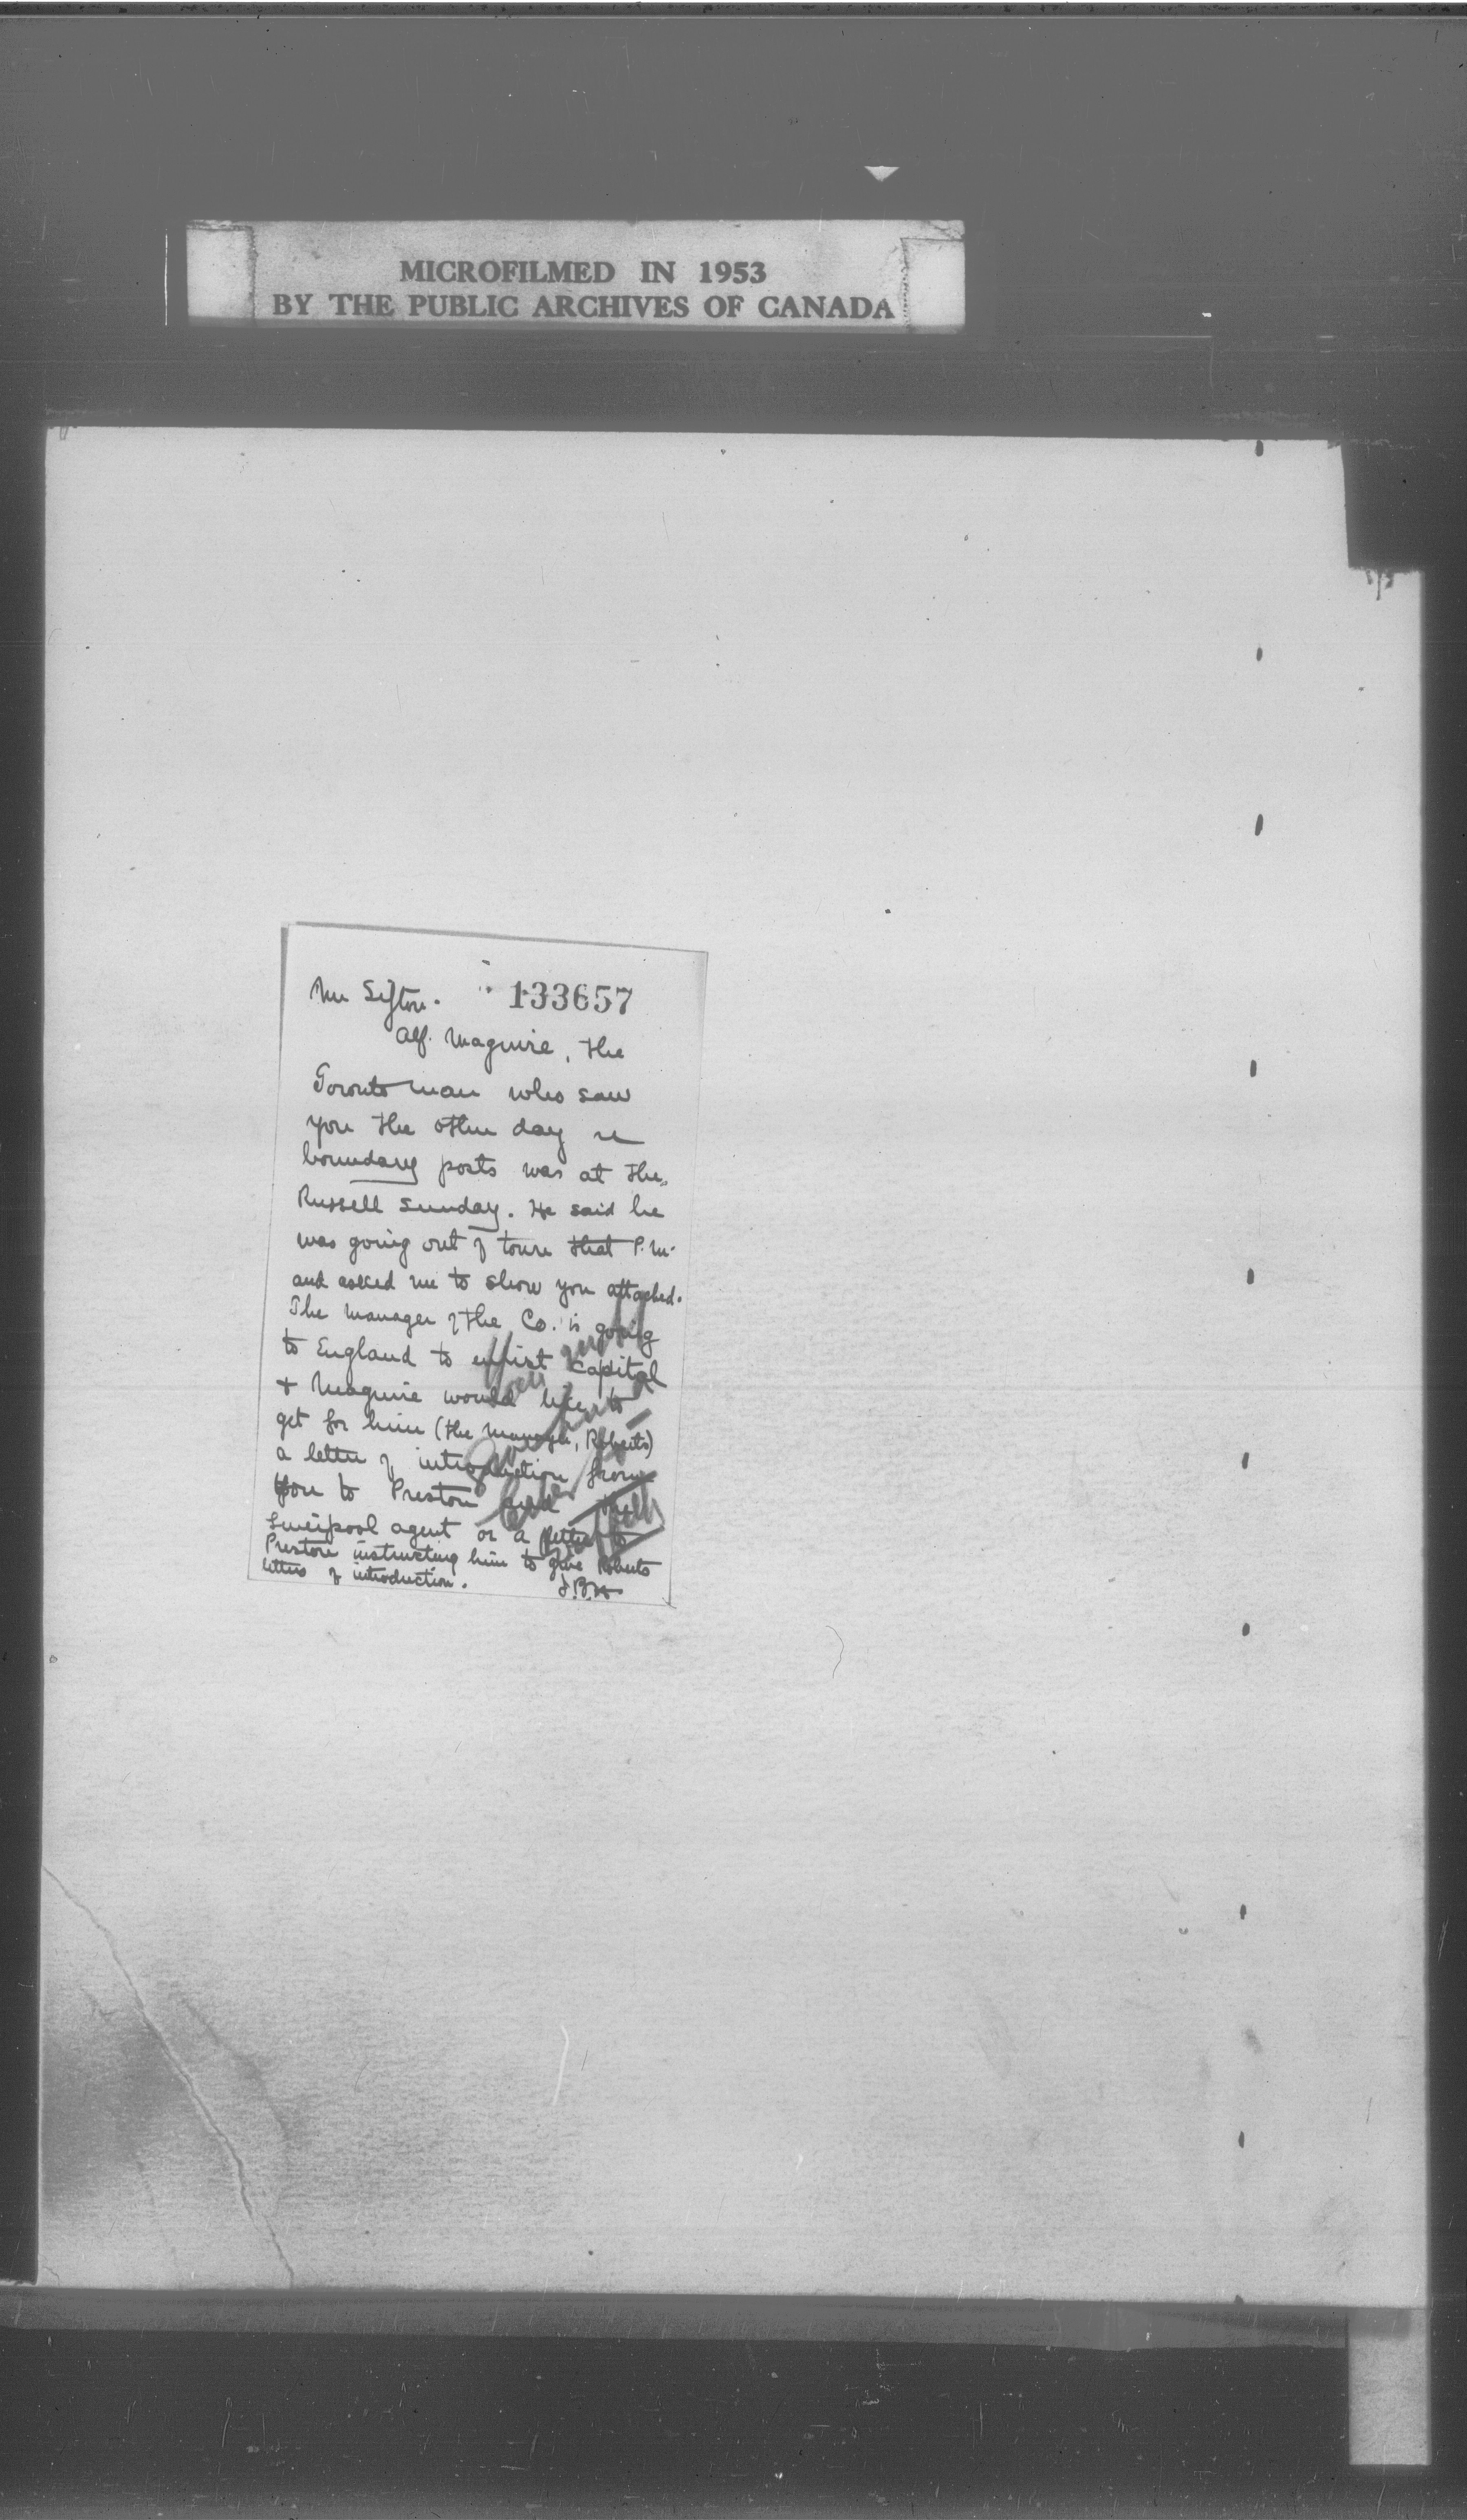 MICROFILMED IN 1953
BY THE PUBLIC ARCHIVES OF CANADA
Mr Sifton. 133657
Alf. Maguire, the
Toronto man who saw
you the other day re
boundary posts was at the
Russell Sunday. He said he
was going out of town that P.M.
and asked me to show you attached.
The manager of the Co. is going
to England to enlist capital
& Maguire would like to
get for him (the manager, Roberts)
a letter of introduction from
you to Preston and the
Liverpool agent or a letter to
Preston instructing him to give Roberts
letters of introduction.